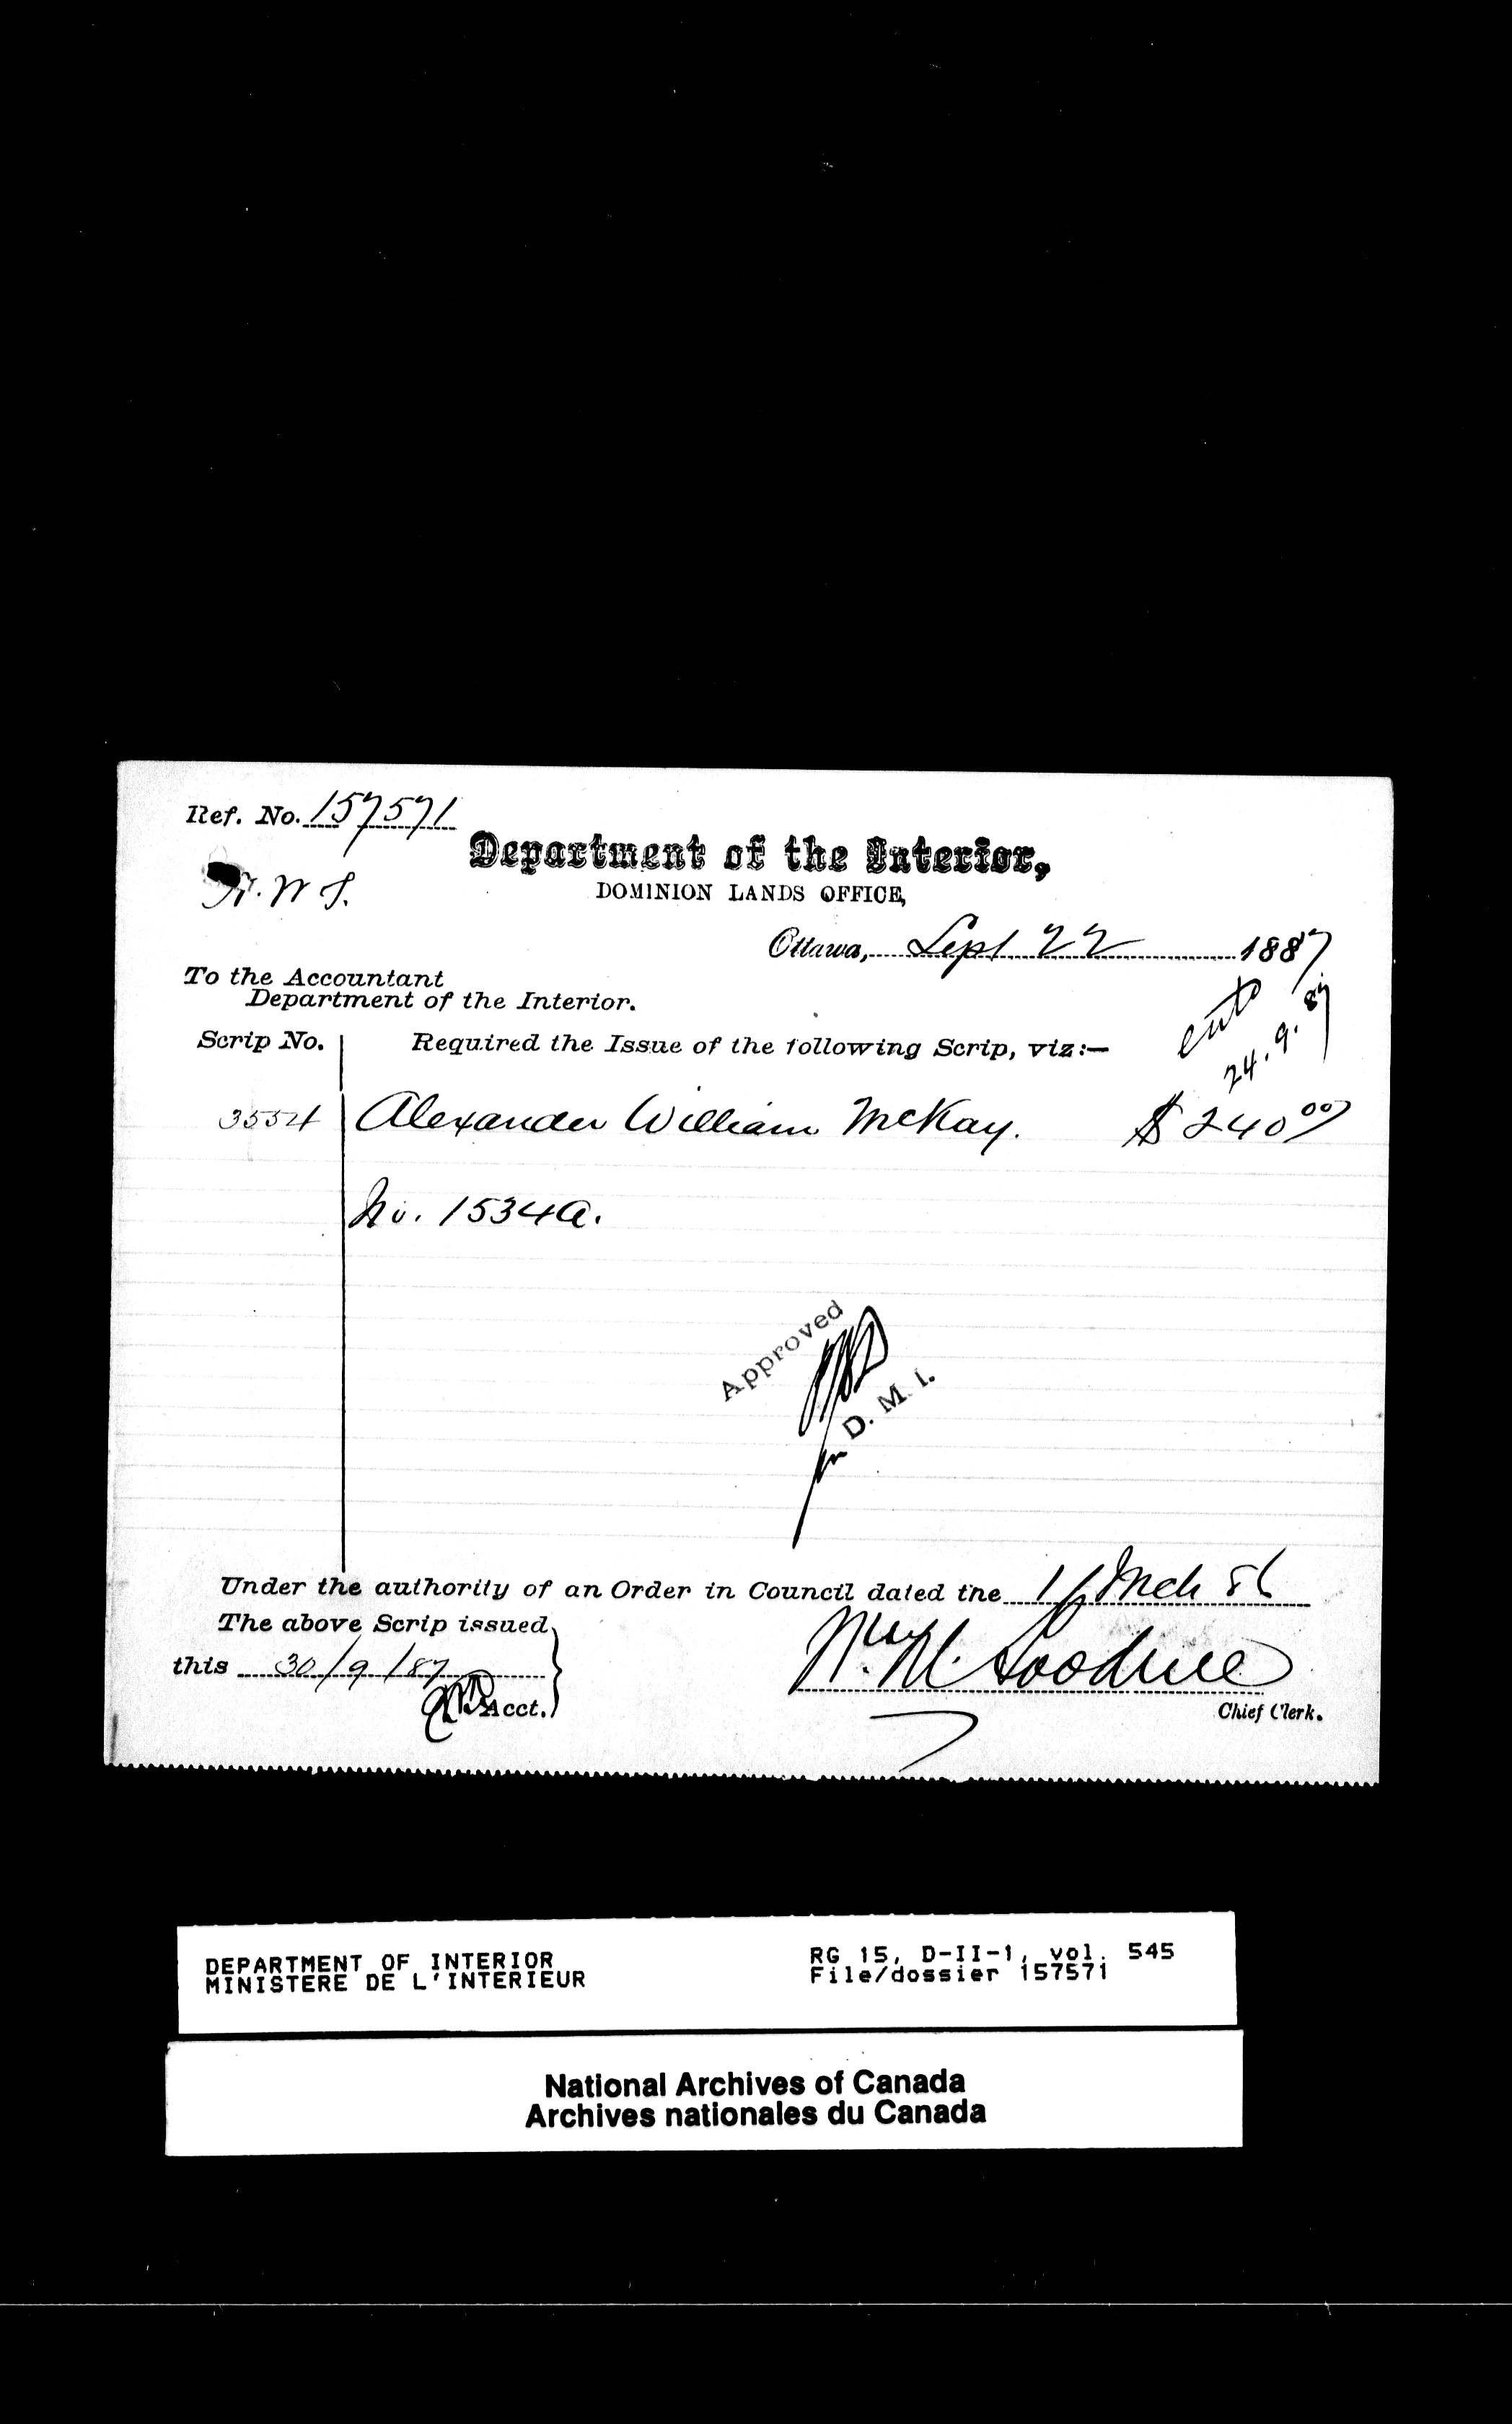 Ref. No. 157571
Department of the Interior,
DOMINION LANDS OFFICE,
Ottawa, Sept 22 1887
To the Accountant
Department of the Interior.
24.9.87
Scrip No. Required the Issue of the following Scrip, viz:—
3554 Alexander William McKay. $240.00
No. 1534a.
Approved
for D. M. I.
Under the authority of an Order in Council dated the 1 Mch 86
The above Scrip issued
this 30/9/87
Acct.
Chief Clerk.
DEPARTMENT OF INTERIOR
MINISTERE DE L'INTERIEUR
RG 15, D-II-1, vol. 545
File/dossier 157571
National Archives of Canada
Archives nationales du Canada